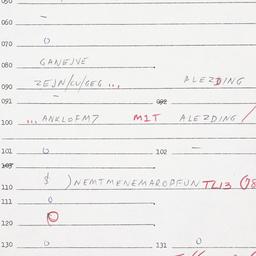 050
060 –
070 0
080 GANEJVE
090 ZEJN/CV/GEG ... ALEZDING
091 – 092
100 ... ANKLOFM7 M1T ALEZDING /
101 0 102 –
103
110 $ )NEMTMENEMAROPFUN TL13 (78
111 0
120
130 0 131 0